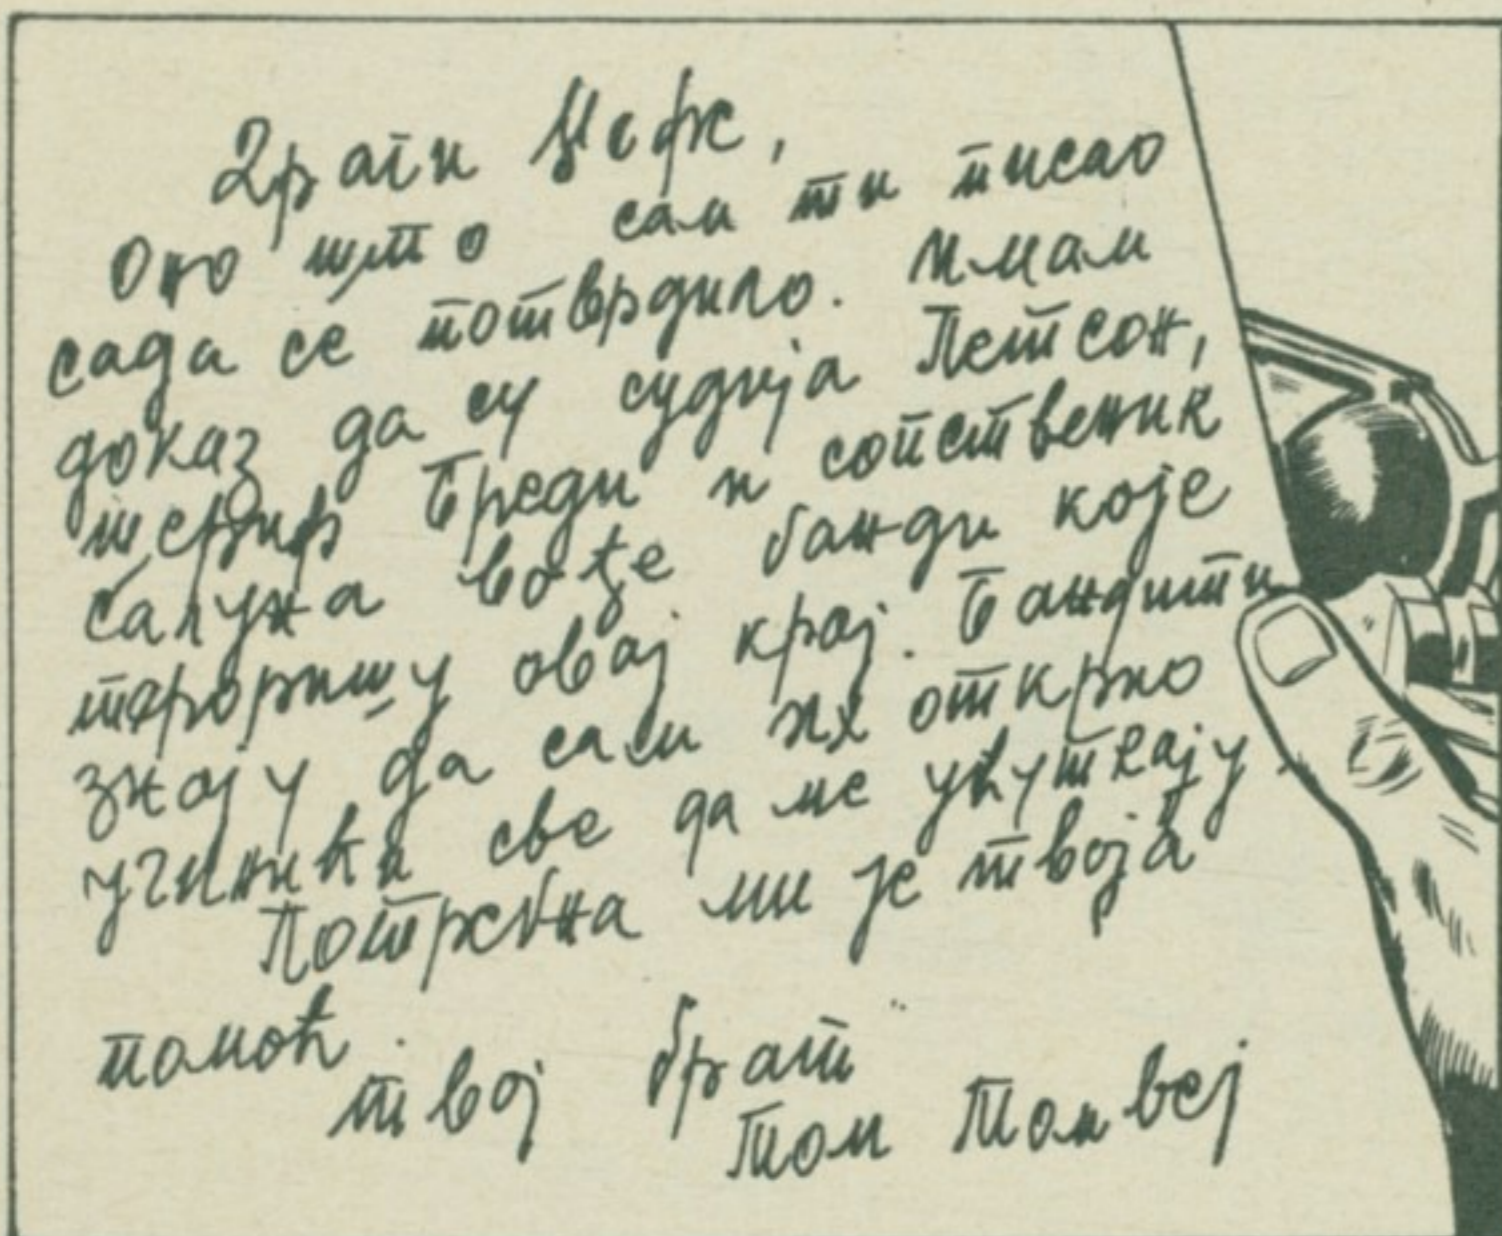 Драги Џефе,
Оно што сам ти писао
сада се потврдило. Имам
доказ да су судија Петсон,
шериф Бреди и сопственик
салуна вође банди које
тероришу овај крај. Бандити
знају да сам их открио
учинићи све да ме ућуткају.
Потребна ми је твоја
помоћ.
твој брат
Том Томвеј